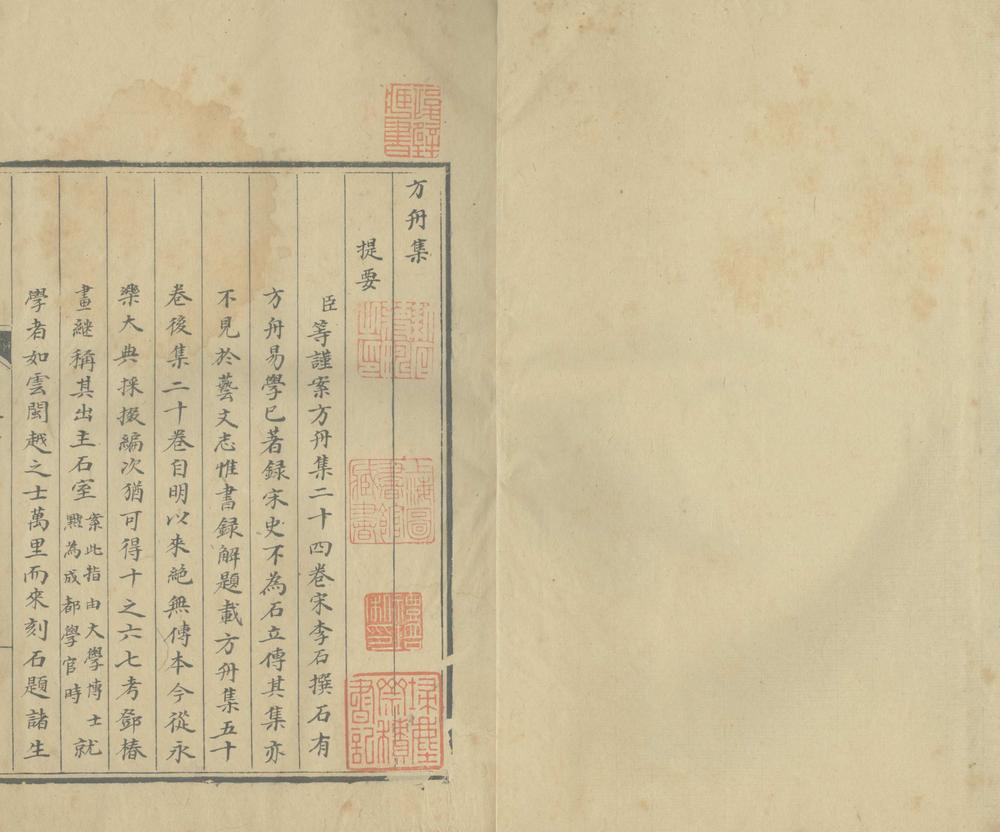 方舟集
提要
臣等謹案方舟集二十四卷宋李石撰石有
方舟易學已著錄宋史不為石立傳其集亦
不見於藝文志惟書錄解題載方舟集五十
卷後集二十卷自明以來絕無傳本今從永
樂大典採掇編次猶可得十之六七考鄧椿
畫繼稱其出主石室案此指由大學博士就
黜為成都學官時
學者如雲閩越之士萬里而來刻石題諸生
上海圖書館藏書